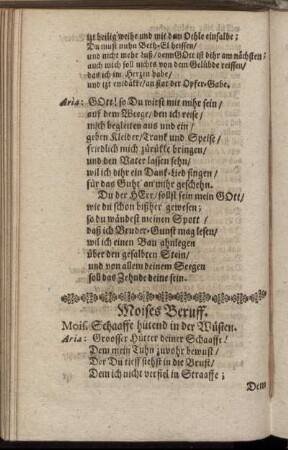 izt heilig weihe und mit dem Oehle einsalbe;
Du must nuhn Beth-El heissen/
und nicht mehr Luß/ denn GOtt ist dihr am nächsten;
auch mich soll nichts von dem Gelübde reissen/
das ich im Herzen habe/
und izt entdükke/ an stat der Opfer-Gabe.
Aria: GOtt! so Du wirst mit mihr sein/
auf dem Weege/ den ich reise/
mich begleiten aus und ein/
geben Kleider/ Trank und Speise/
friedlich mich zurükke bringen/
und den Vater lassen sehn/
wil ich dihr ein Dank-Lied singen/
für das Guhr an mihr geschehn.
Du der HErr/ sollst sein mein GOtt/
wie du schon bißher gewesen;
so du wändest meinen Spott/
daß ich Bruder-Gunst mag lesen/
wil ich einen Bau ahnlegen
über den gesalbten Stein/
und von allem deinem Seegen
soll das Zehnde deine sein.
Moises Beruff.
Mois. Schaaffe hütend in der Wüsten.
Aria: Groosser Hütter deiner Schaaffe!
Dem mein Tuhn zuvohr bewust/
Der Du tieff siehst in die Brust/
Dem ich nicht verfiel in Straaffe;
Dem